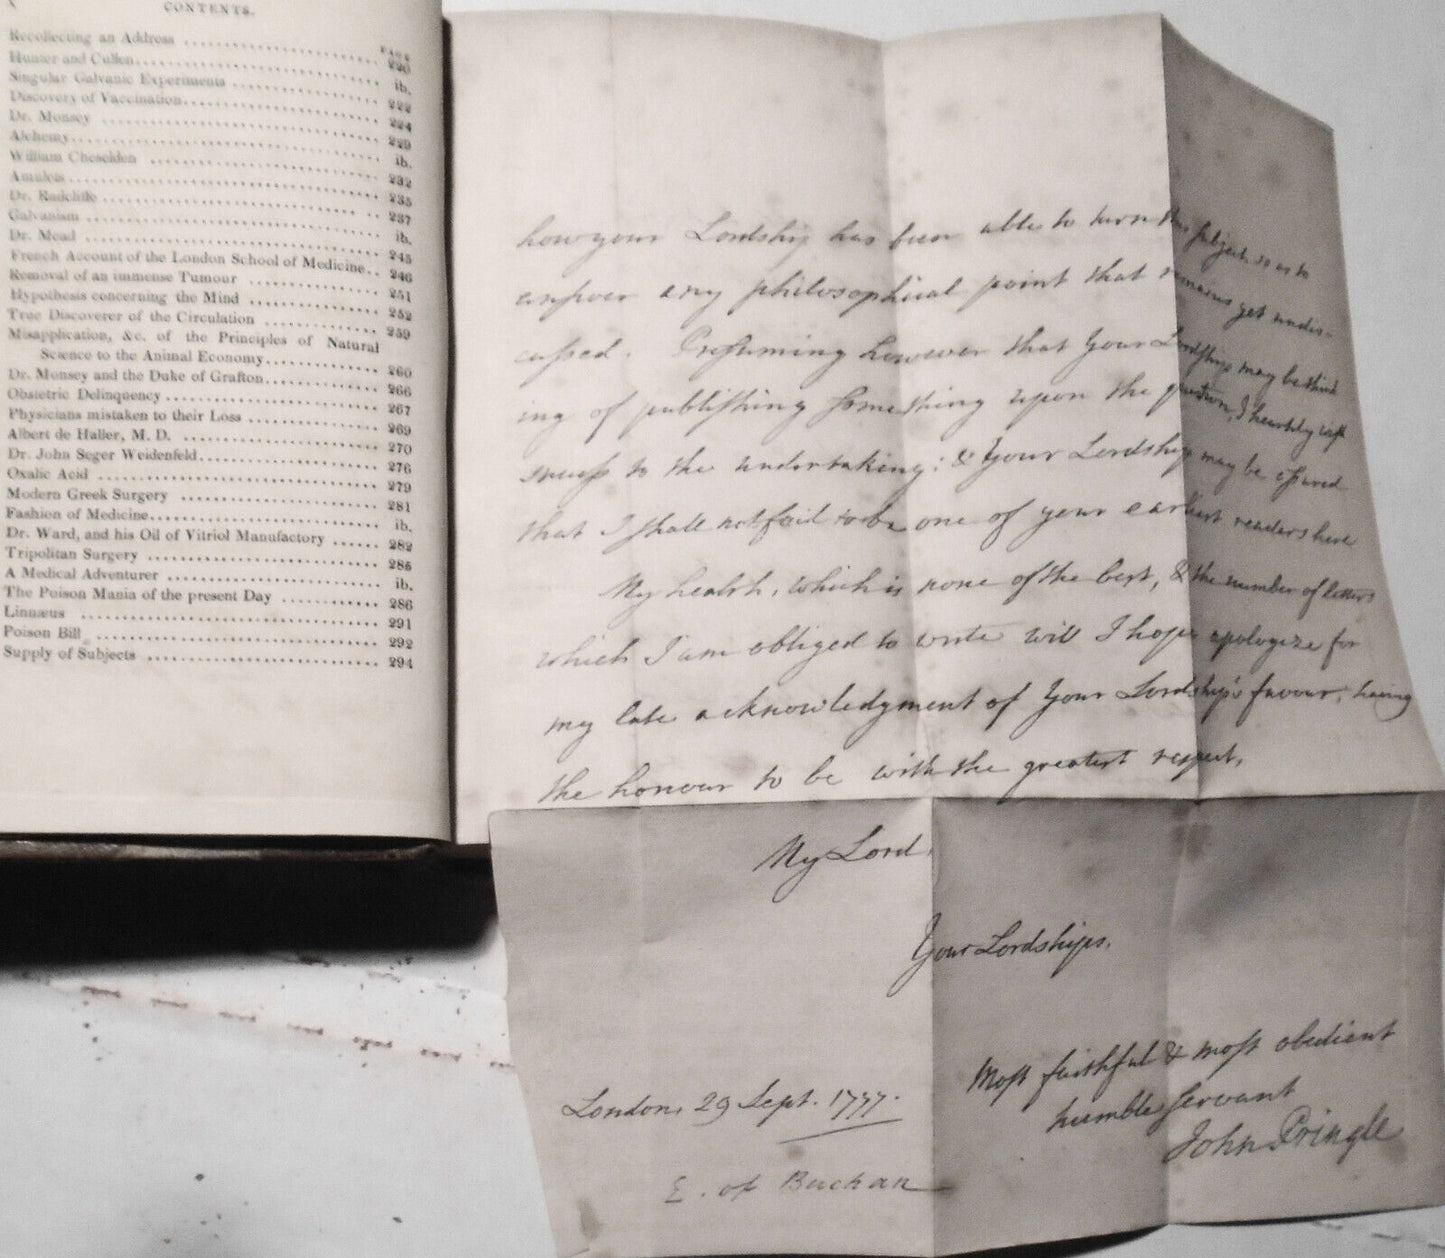 x
CONTENTS.
PAGE
Recollecting an Address ........ 220
Hunter and Cullen ........ ib.
Singular Galvanic Experiments ........ 222
Discovery of Vaccination ........ 224
Dr. Monsey ........ 229
Alchemy ........ ib.
William Cheselden ........ 232
Amulets ........ 235
Dr. Radcliffe ........ 237
Galvanism ........ ib.
Dr. Mead ........ 245
French Account of the London School of Medicine .. 246
Removal of an immense Tumour ........ 251
Hypothesis concerning the Mind ........ 252
True Discoverer of the Circulation ........ 259
Misapplication, &c. of the Principles of Natural
Science to the Animal Economy ........ 260
Dr. Monsey and the Duke of Grafton ........ 266
Obstetric Delinquency ........ 267
Physicians mistaken to their Loss ........ 269
Albert de Haller, M. D. ........ 270
Dr. John Seger Weidenfeld ........ 276
Oxalic Acid ........ 279
Modern Greek Surgery ........ 281
Fashion of Medicine ........ ib.
Dr. Ward, and his Oil of Vitriol Manufactory ...... 282
Tripolitan Surgery ........ 285
A Medical Adventurer ........ ib.
The Poison Mania of the present Day ........ 286
Linnæus ........ 291
Poison Bill ........ 292
Supply of Subjects ........ 294
how your Lordship has been able to turn this subject so as to
answer any philosophical point that remains yet undis-
cussed. Presuming however that your Lordship may be think
ing of publishing something upon the question, I heartily wish
success to the undertaking; & your Lordship may be assured
that I shall not fail to be one of your earliest readers here
My health, which is none of the best, & the number of letters
which I am obliged to write will I hope apologize for
my late acknowledgment of your Lordship's favour; having
the honour to be with the greatest respect,
My Lord,
Your Lordships,
Most faithful & most obedient
humble servant
John Pringle
London, 29 Sept. 1777.
E. of Buchan